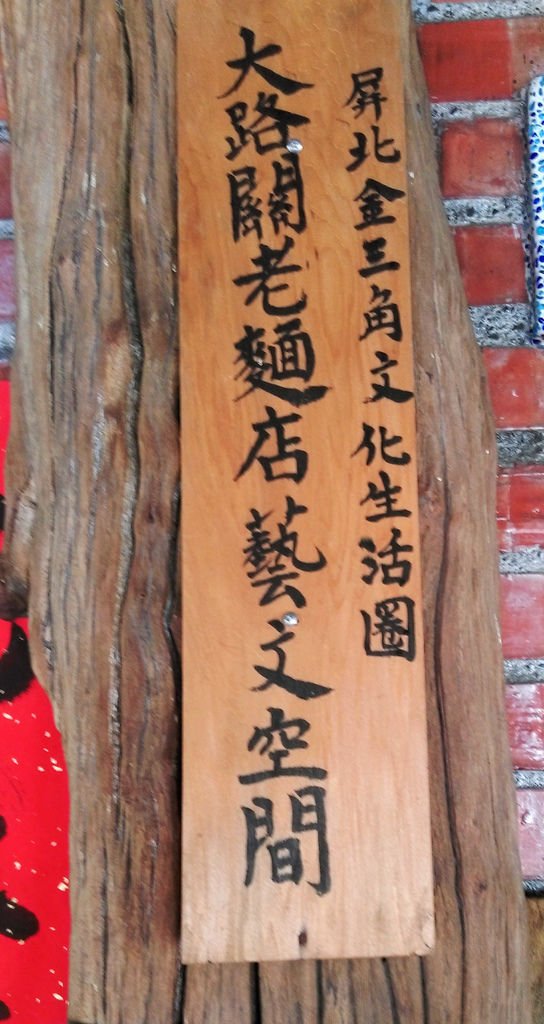 屏北金三角文化生活圈
大路關老麵店藝文空間